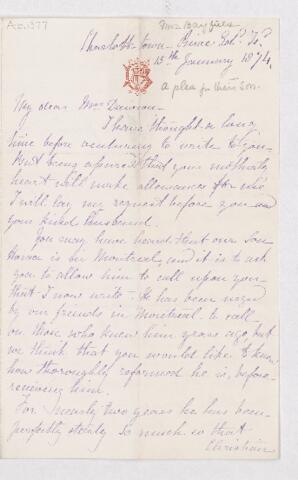 Ac.1377
Mrs Bayfield
Charlotte-town - Prince Ed. Id.
15th January 1874.
a plea for their son.
My dear Mrs Dawson -
I have thought a long
time before venturing to write to you -
But being assured that your motherly
heart will make allowances for me
I will lay my request before you and
your kind husband.
You may have heard that our Son
Horace is in Montreal, and it is to ask
you to allow him to call upon you
that I now write - He has been urged
by our friends in Montreal to call
on those who knew him years ago, but
we think that you would like to know
how thoroughly reformed he is, before
receiving him.
For nearly two years he has been
perfectly steady so much so that
Christian